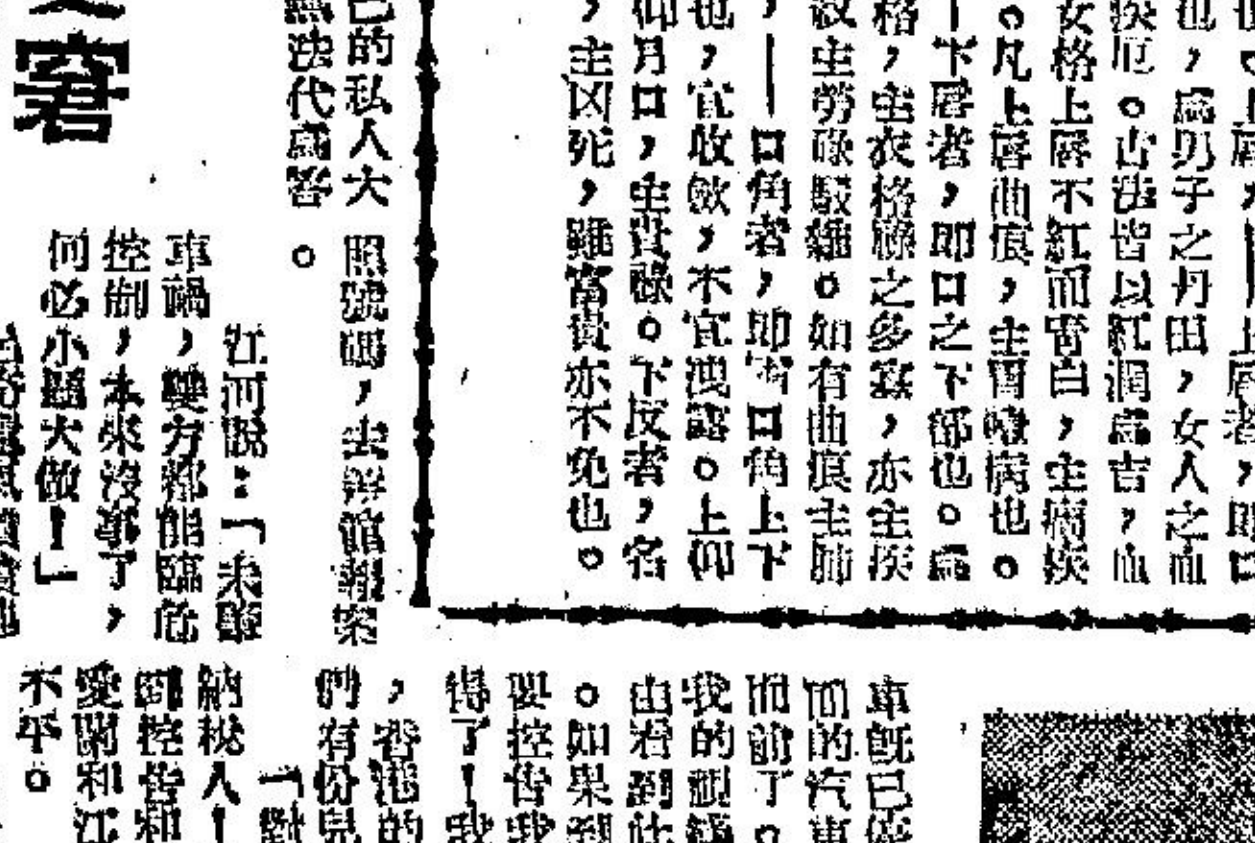 上唇者，即口
也，為男子之丹田，女人之血
疾厄。古法皆以紅潤為吉，血
女格上唇不紅而青白，主病疾
。凡上唇曲痕，主胃嗽病也。
—下唇者，即口之下部也。為
格，主衣格祿之多寡，亦主疾
紋主勞碌駁雜。如有曲痕主肺
，——口角者，即審口角上下
也，宜收斂，不宜洩露。上仰
仰月口，主貴祿。下反者，名
，主凶死，雖富貴亦不免也。
己的私人大
無法代為答
照號碼，去館報案
。
江河說：「未肇
車禍，雙方都能臨危
控制，本來沒事了，
何必小題大做！」
車既已停
面的汽車
而前了。
我的視線
由看到此
。如果到
要控告我
得了！我
，香港的
們有份兒
「對
納稅人！
到控告和
愛閑和江
不平。